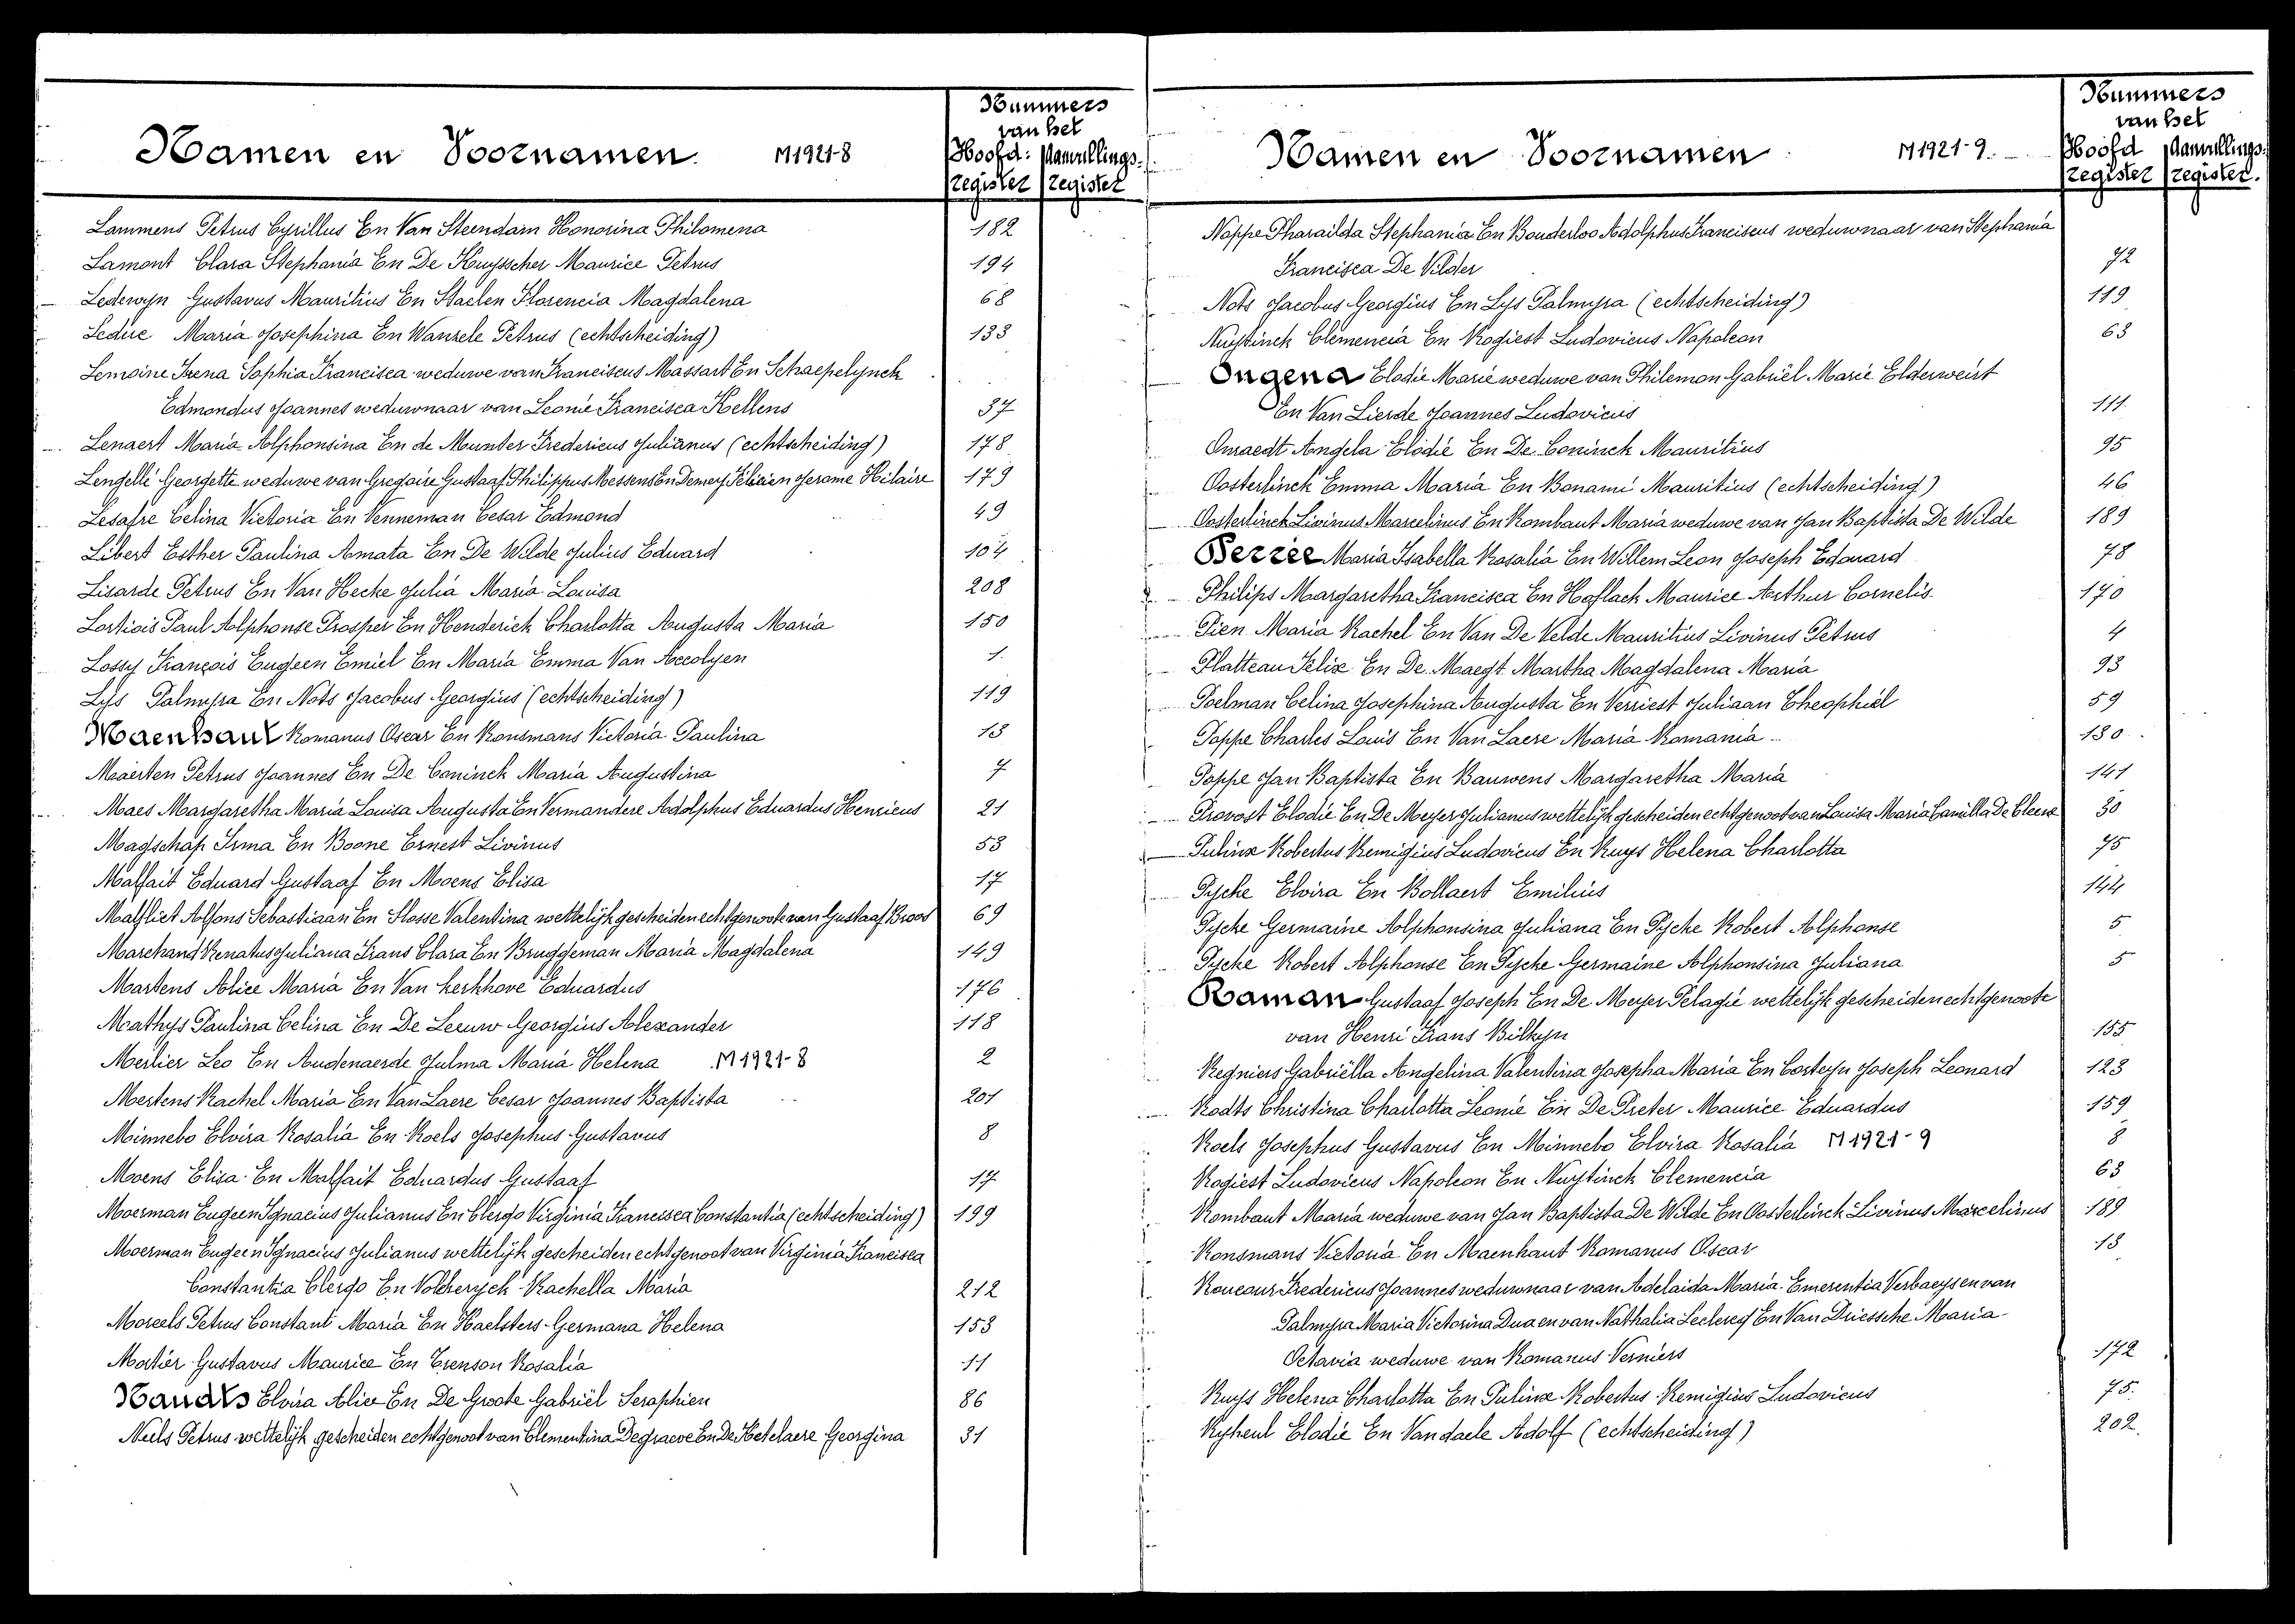 Namen en Voornamen. M1921-8
Nummers
van het
Hoofd: Aanvullings.
register register
Lammens Petrus Cyrillus En Van Steendam Honorina Philomena 182
Lamont Clara Stephania En De Kuysscher Maurice Petrus 194
Ledewyn Gustavus Mauritius En Staelen Florencia Magdalena 68
Leduc Maria Josephina En Wanzele Petrus (echtscheiding) 133
Lemoine Irena Sophia Francisca weduwe van Franciscus Massart En Schaepelynck
Edmondus Joannes weduwnaar van Leonie Francisca Kellens 37
Lenaert Maria Alphonsina En de Munter Fredericus Julianus (echtscheiding) 178
Lengelli Georgette weduwe van Gregoire Gustaaf Philippus Messens En Demey Felicien Jerome Hilaire 179
Lesafre Celina Victoria En Venneman Cesar Edmond 49
Libert Esther Paulina Amata En De Wilde Julius Eduard 104
Lisarde Petrus En Van Hecke Julia Maria Louisa 208
Lortiois Paul Alphonse Prosper En Henderick Charlotta Augusta Maria 150
Lossy François Eugeen Emiel En Maria Emma Van Accolyen 1
Lys Palmyra En Nots Jacobus Georgius (echtscheiding) 119
Maenhaut Romanus Oscar En Ronsmans Victoria Paulina 13
Maerten Petrus Joannes En De Coninck Maria Augustina 7
Maes Margaretha Maria Louisa Augusta En Vermandere Adolphus Eduardus Henricus 21
Magschap Irma En Boone Ernest Livinus 53
Malfait Eduard Gustaaf En Moens Elisa 17
Malfliet Alfons Sebastiaan En Slosse Valentina wettelijk gescheiden echtgenoote van Gustaaf Broos 69
Marchand Renatus Juliana Frans Clara En Bruggeman Maria Magdalena 149
Martens Alice Maria En Van Kerkhove Eduardus 176
Mathys Paulina Celina En De Leeuw Georgius Alexander 118
Merlier Leo En Audenaerde Julma Maria Helena M1921-8 2
Mertens Rachel Maria En Van Laere Cesar Joannes Baptista 201
Minnebo Elvira Rosalia En Roels Josephus Gustavus 8
Moens Elisa En Malfait Eduardus Gustaaf 17
Moerman Eugeen Ignacius Julianus En Clergo Virginia Francisca Constantia (echtscheiding) 199
Moerman Eugeen Ignacius Julianus wettelijk gescheiden echtgenoot van Virginia Francisca
Constantia Clergo En Volckeryck Rachella Maria 212
Moreels Petrus Constant Maria En Haelsters Germana Helena 153
Mortier Gustavus Maurice En Trenson Rosalia 11
Nandts Elvira Alice En De Groote Gabriël Seraphien 86
Neels Petrus wettelijk gescheiden echtgenoot van Clementina Degraeve En De Ketelaere Georgina 31
Namen en Voornamen M1921-9.
Nummers
van het
Hoofd Aanvullings.
register register.
Neppe Pharailda Stephania En Bonderloo Adolphus Franciscus weduwnaar van Stephania
Francisca De Vilder 72
Nots Jacobus Georgius En Lys Palmyra (echtscheiding) 119
Nuytinck Clemencia En Rogiest Ludovicus Napoleon 63
Ongena Elodie Marie weduwe van Philemon Gabriël Marie Elderweirt
En Van Lierde Joannes Ludovicus 111
Onraedt Angela Elodie En De Coninck Mauritius 95
Oosterlinck Emma Maria En Bonami Mauritius (echtscheiding) 46
Oosterlinck Livinus Marcelinus En Rombaut Maria weduwe van Jan Baptista De Wilde 189
Perrée Maria Isabella Rosalia En Willem Leon Joseph Edouard 78
Philips Margaretha Francisca En Hoflack Maurice Arthur Cornelis 170
Pien Maria Rachel En Van De Velde Mauritius Livinus Petrus 4
Platteau Felix En De Maegt Martha Magdalena Maria 93
Poelman Celina Josephina Augusta En Verriest Juliaan Theophiel 59
Poppe Charles Louis En Van Laere Maria Romania 130
Poppe Jan Baptista En Bauwens Margaretha Maria 141
Provost Elodie En De Meyer Julianus wettelijk gescheiden echtgenoot van Louisa Maria Camilla De Clerck 30
Pulinx Robertus Remigius Ludovicus En Ruys Helena Charlotta 75
Pycke Elvira En Bollaert Emilius 144
Pycke Germaine Alphonsina Juliana En Pycke Robert Alphonse 5
Pycke Robert Alphonse En Pycke Germaine Alphonsina Juliana 5
Raman Gustaaf Joseph En De Meyer Pelagie wettelijk gescheiden echtgenoote
van Henri Frans Bilkyn 155
Regniers Gabriëlla Angelina Valentina Josepha Maria En Corteyn Joseph Leonard 123
Rodts Christina Charlotta Leonie En De Pieter Maurice Eduardus 159
Roels Josephus Gustavus En Minnebo Elvira Rosalia M1921-9 8
Rogiest Ludovicus Napoleon En Nuytinck Clemencia 63
Rombaut Maria weduwe van Jan Baptista De Wilde En Oosterlinck Livinus Marcelinus 189
Ronsmans Victoria En Maenhaut Romanus Oscar 13
Roucour Fredericus Joannes weduwnaar van Adelaida Maria Emerentia Verbaeys en van
Palmyra Maria Victorina Dua en van Nathalia Leclercq En Van Driessche Maria
Octavia weduwe van Romanus Verniers 172
Ruys Helena Charlotta En Pulinx Robertus Remigius Ludovicus 75.
Ryheul Elodie En Vandaele Adolf (echtscheiding) 202.